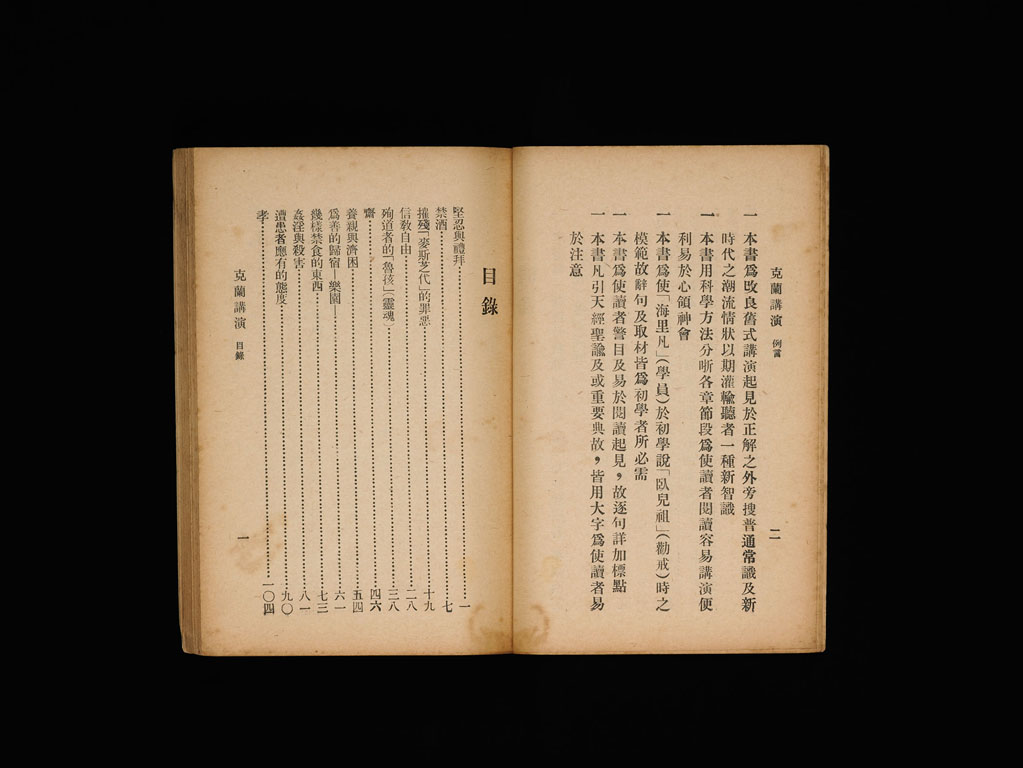 克蘭講演 例言 二
一本書爲改良舊式講演起見於正解之外旁搜普通常識及新
時代之潮流情狀以期灌輸聽者一種新智識
一本書用科學方法分晰各章節段爲使讀者閱讀容易講演便
利易於心領神會
一本書爲使「海里凡」(學員)於初學說「臥兒祖」(勸戒)時之
模範故辭句及取材皆爲初學者所必需
一本書爲使讀者警目及易於閱讀起見，故逐句詳加標點
一本書凡引天經聖諭及或重要典故，皆用大字爲使讀者易
於注意
目錄
堅忍與禮拜 一
禁酒 七
摧殘「麥斯芝代」的罪惡 十九
信教自由 二八
殉道者的「魯核」(靈魂) 三八
齋 四六
養親與濟困 五四
爲善的歸宿—樂園— 六一
幾樣禁食的東西 七三
姦淫與殺害 八一
遭患者應有的態度 九〇
孝 一〇四
克蘭講演 目錄 一